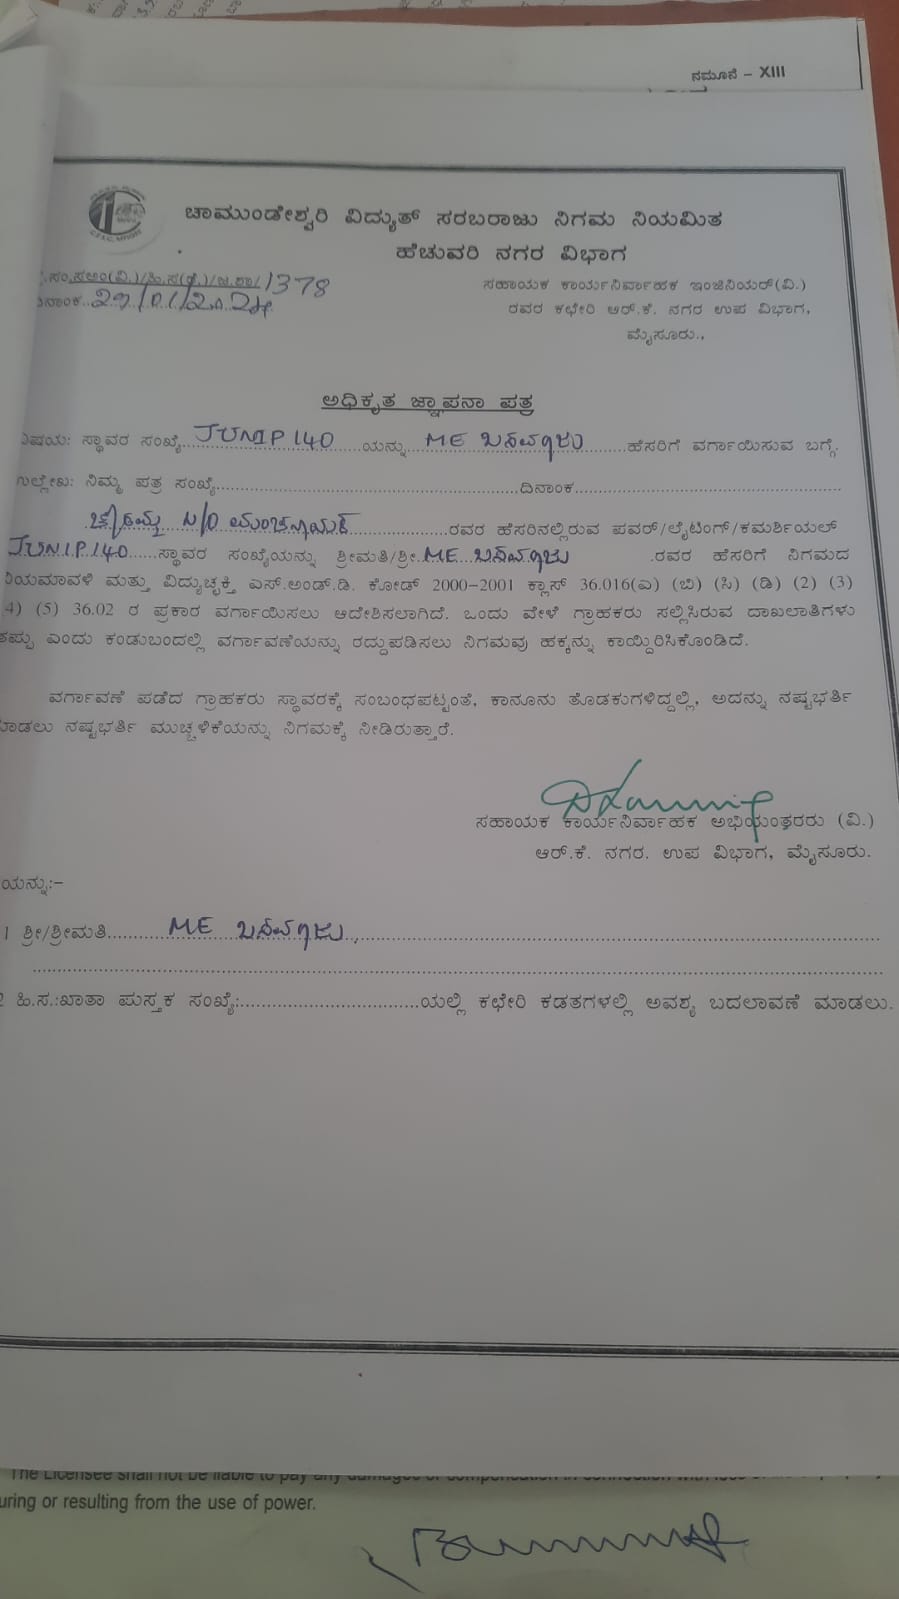 ನಮೂನೆ – XIII
ಚಾಮುಂಡೇಶ್ವರಿ ವಿದ್ಯುತ್ ಸರಬರಾಜು ನಿಗಮ ನಿಯಮಿತ
ಹೆಚುವರಿ ನಗರ ವಿಭಾಗ
ಸಂ.ಸಅಂ(ವಿ.)/ಹಿ.ಸ(ಕೈ)/ಜ.ಶಾ/1378
ಸಹಾಯಕ ಕಾರ್ಯನಿರ್ವಾಹಕ ಇಂಜಿನಿಯರ್(ವಿ.)
ನಾಂಕ..29/01/2024
ರವರ ಕಛೇರಿ ಆರ್.ಕೆ. ನಗರ ಉಪ ವಿಭಾಗ,
ಮೈಸೂರು.,
ಅಧಿಕೃತ ಜ್ಞಾಪನಾ ಪತ್ರ
ಷಯ: ಸ್ಥಾವರ ಸಂಖ್ಯೆ JUNIP140 ......ಯನ್ನು ME ಬಸವರಾಜು ......ಹೆಸರಿಗೆ ವರ್ಗಾಯಿಸುವ ಬಗ್ಗೆ.
ಲ್ಲೇಖ: ನಿಮ್ಮ ಪತ್ರ ಸಂಖ್ಯೆ..........................................................ದಿನಾಂಕ..................................................
ಚೌಡಮ್ಮ W/O ಮಂಚನಾಯಕ ......ರವರ ಹೆಸರಿನಲ್ಲಿರುವ ಪವರ್/ಲೈಟಿಂಗ್/ಕಮರ್ಶಿಯಲ್
JUNIP140......ಸ್ಥಾವರ ಸಂಖ್ಯೆಯನ್ನು ಶ್ರೀಮತಿ/ಶ್ರೀ. ME ಬಸವರಾಜು .ರವರ ಹೆಸರಿಗೆ ನಿಗಮದ
ನಿಯಮಾವಳಿ ಮತ್ತು ವಿದ್ಯುಚ್ಛಕ್ತಿ ಎಸ್.ಅಂಡ್.ಡಿ. ಕೋಡ್ 2000–2001 ಕ್ಲಾಸ್ 36.016(ಎ) (ಬಿ) (ಸಿ) (ಡಿ) (2) (3)
4) (5) 36.02 ರ ಪ್ರಕಾರ ವರ್ಗಾಯಿಸಲು ಆದೇಶಿಸಲಾಗಿದೆ. ಒಂದು ವೇಳೆ ಗ್ರಾಹಕರು ಸಲ್ಲಿಸಿರುವ ದಾಖಲಾತಿಗಳು
ತಪ್ಪು ಎಂದು ಕಂಡುಬಂದಲ್ಲಿ ವರ್ಗಾವಣೆಯನ್ನು ರದ್ದುಪಡಿಸಲು ನಿಗಮವು ಹಕ್ಕನ್ನು ಕಾಯ್ದಿರಿಸಿಕೊಂಡಿದೆ.
ವರ್ಗಾವಣೆ ಪಡೆದ ಗ್ರಾಹಕರು ಸ್ಥಾವರಕ್ಕೆ ಸಂಬಂಧಪಟ್ಟಂತೆ, ಕಾನೂನು ತೊಡಕುಗಳಿದ್ದಲ್ಲಿ, ಅದನ್ನು ನಷ್ಟಭರ್ತಿ
ಮಾಡಲು ನಷ್ಟಭರ್ತಿ ಮುಚ್ಚಳಿಕೆಯನ್ನು ನಿಗಮಕ್ಕೆ ನೀಡಿರುತ್ತಾರೆ.
ಸಹಾಯಕ ಕಾರ್ಯನಿರ್ವಾಹಕ ಅಭಿಯಂತರರು (ವಿ.)
ಆರ್.ಕೆ. ನಗರ. ಉಪ ವಿಭಾಗ, ಮೈಸೂರು.
ಯನ್ನು:–
1 ಶ್ರೀ/ಶ್ರೀಮತಿ.......... ME ಬಸವರಾಜು..................................................
2 ಹಿ.ಸ.:ಖಾತಾ ಪುಸ್ತಕ ಸಂಖ್ಯೆ:..............................ಯಲ್ಲಿ ಕಛೇರಿ ಕಡತಗಳಲ್ಲಿ ಅವಶ್ಯ ಬದಲಾವಣೆ ಮಾಡಲು.
The Licensee shall not be liable to pay any damages or compensation in connection with
uring or resulting from the use of power.